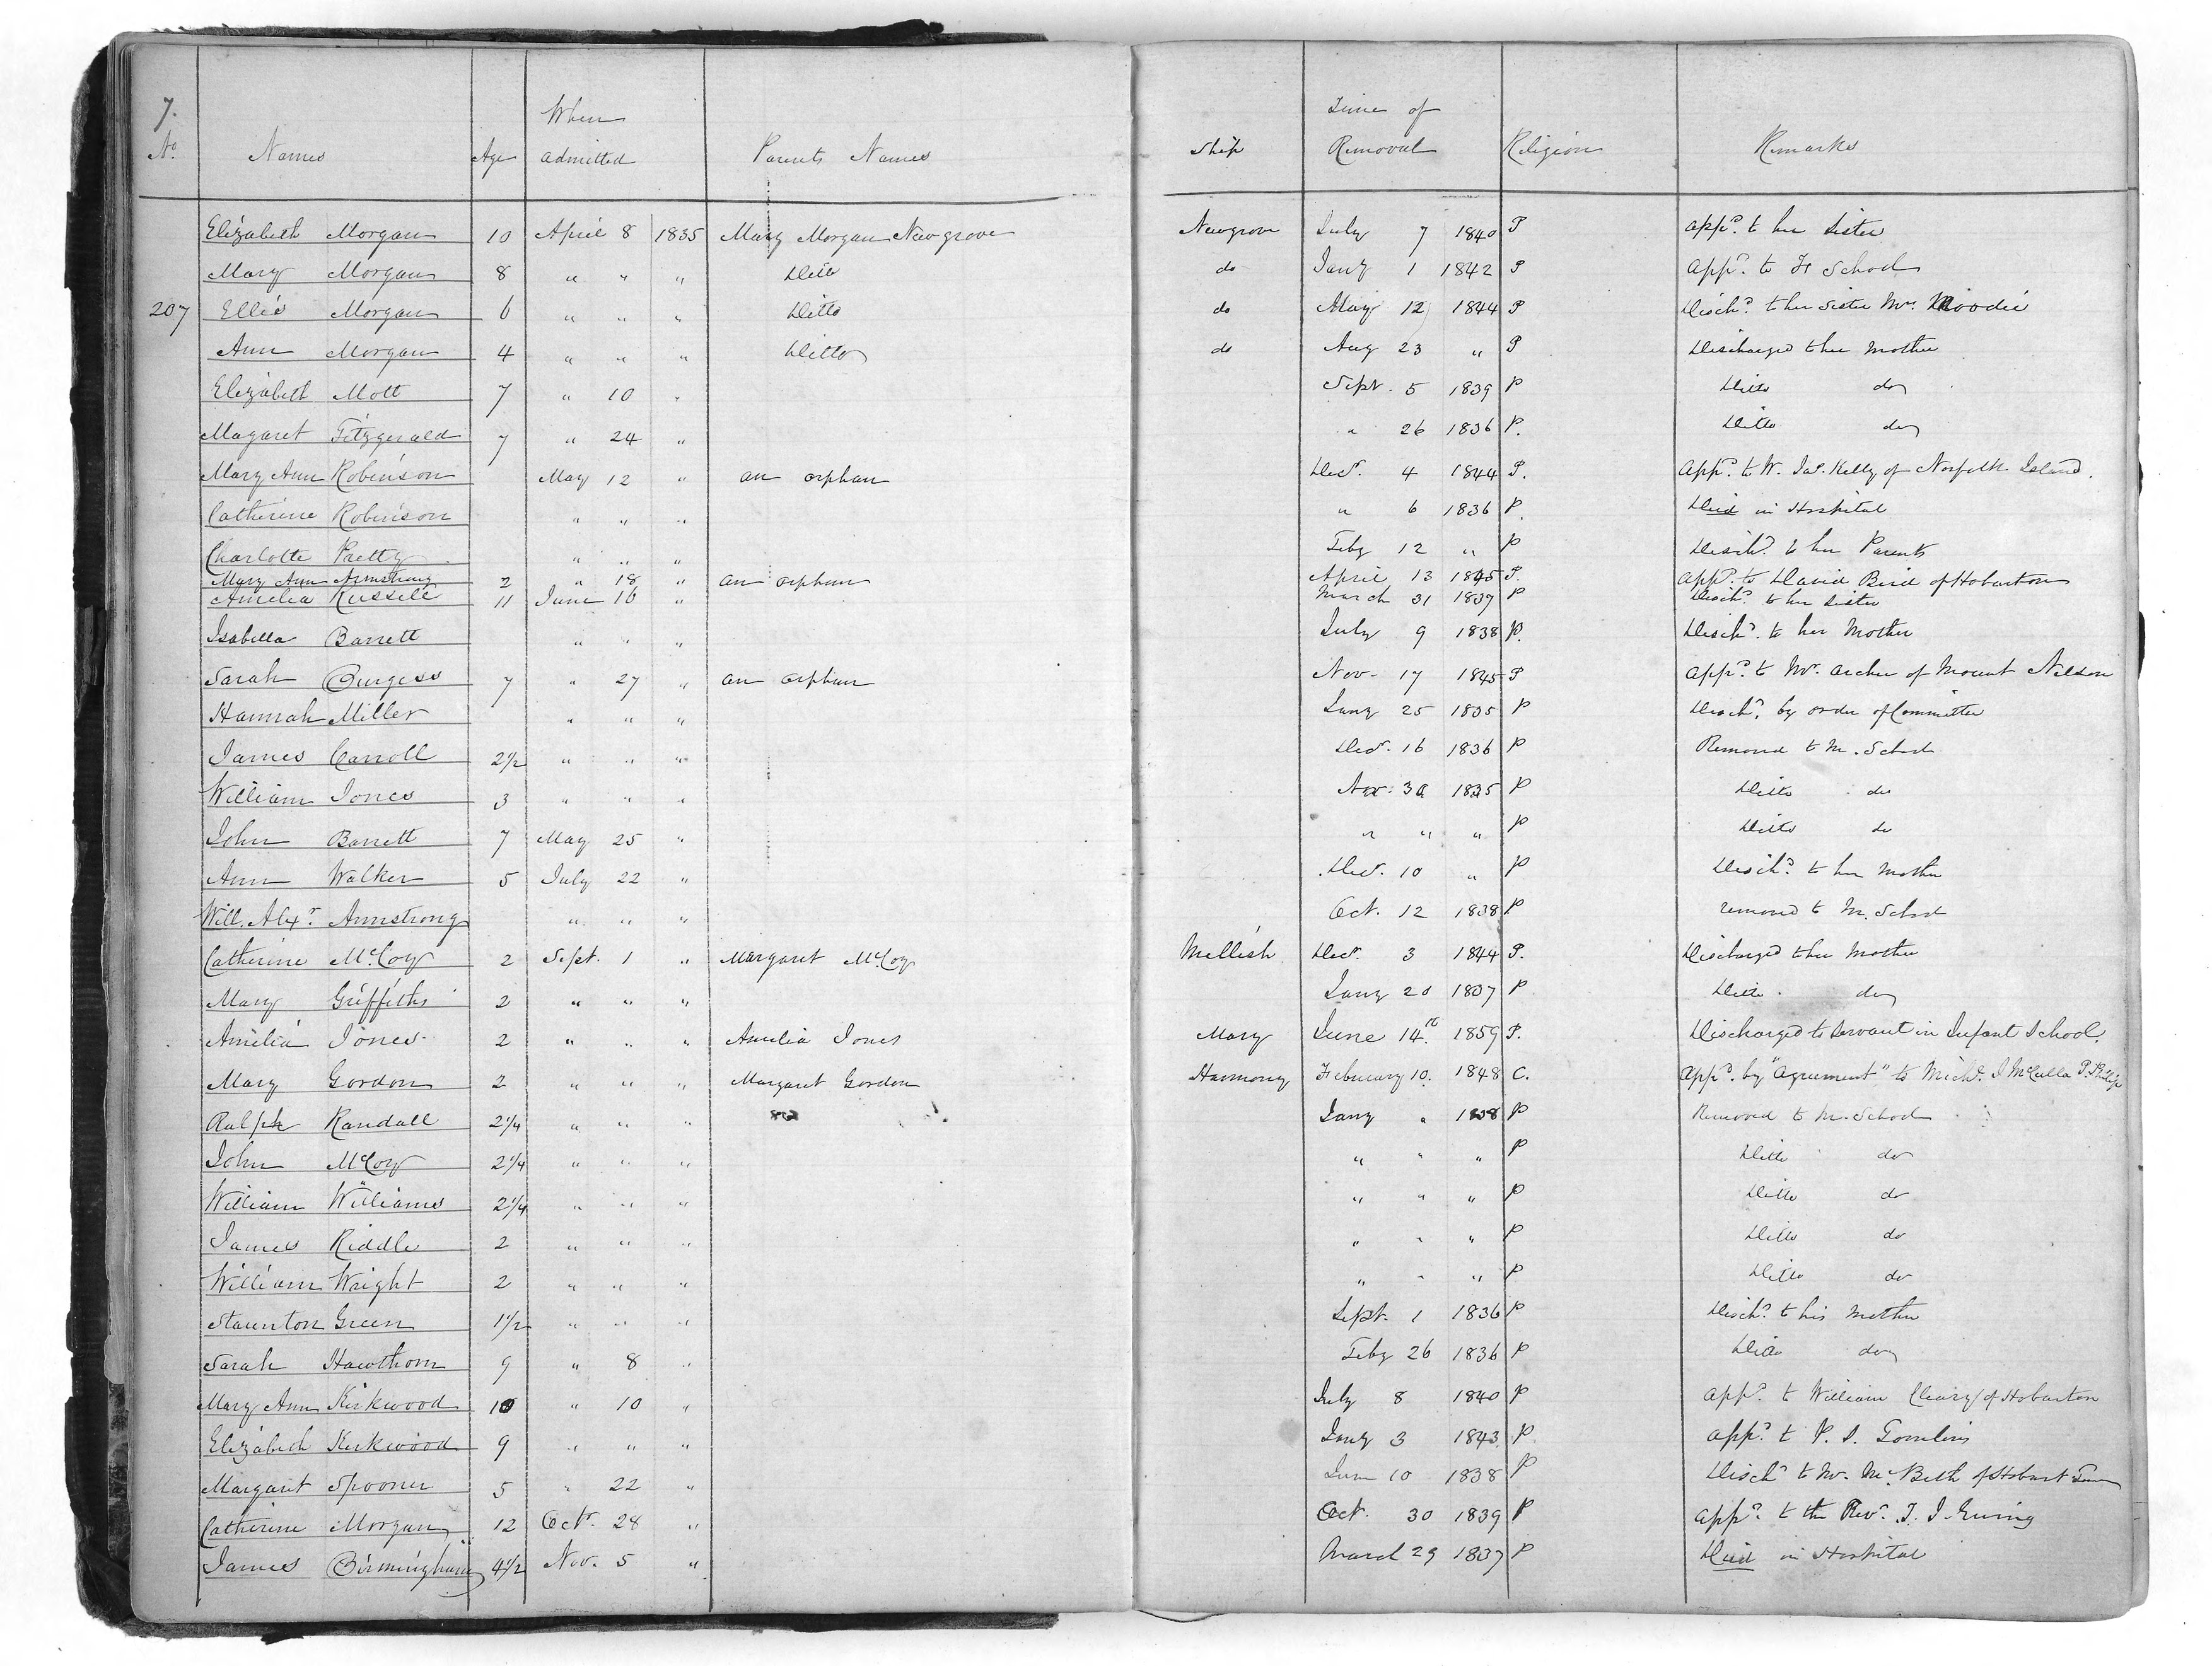 7.
When
Time of
No. Names Age admitted Parents Names Ship Removal Religion Remarks
Elizabeth Morgan 10 April 8 1835 Mary Morgan Newgrove Newgrove July 7 1840 P appd. to her Sister
Mary Morgan 8 " " " Ditto do Jany 1 1842 P appd. to F School
207 Ellis Morgan 6 " " " Ditto do May 12 1844 P Disch.d to her Sister Mrs. Moodie
Ann Morgan 4 " " " Ditto do Aug 23 " P Discharged to her Mother
Elizabeth Mott 7 " 10 " Sept. 5 1839 P Ditto do
Magaret Fitzgerald 7 " 24 " " 26 1836 P. Ditto do
Mary Ann Robinson May 12 " an orphan Decr. 4 1844 P. appd. to W. Jas. Kelly of Norfolk Island.
Catherine Robinson " " " " 6 1836 P. Died in Hospital
Charlotte Pretty " " " Feby 12 " P Disch.d to her Parents
Mary Ann Armstrong 2 " 18 " an orphan April 13 1845 P. appd. to David Bird of Hobarton
Amelia Russell 11 June 16 " March 31 1837 P Disch.d to her Sister
Isabella Barrett " " " July 9 1838 P. Disch.d to her Mother
Sarah Burgess 7 " 27 " an orphan Nov. 17 1845 P appd. to Mr. Archer of Mount Nelson
Hannah Miller " " " Jany 25 1835 P Disch.d by order of Committee
James Carroll 2½ " " " Decr. 16 1836 P Removed to M. School
William Jones 3 " " " Nov. 30 1835 P Ditto do
John Barrett 7 May 25 " " " " P Ditto do
Ann Walker 5 July 22 " Decr. 10 " P Disch.d to her Mother
Will. Alexr. Armstrong " " " Oct. 12 1838 P removed to M. School
Catherine McCoy 2 Sept. 1 " Margaret McCoy Mellish Decr. 3 1844 P. Discharged to her Mother
Mary Griffiths 2 " " " Jany 20 1837 P Ditto do
Amelia Jones 2 " " " Amelia Jones Mary June 14th 1859 P. Discharged to Servant in Infant School.
Mary Gordon 2 " " " Margaret Gordon Harmony February 10. 1848 C. appd. by "Agreement" to Michl. J McCulla P. Philip
Ralph Randall 2¼ " " " Jany " 1838 P Removed to M. School
John McCoy 2¼ " " " " " " P Ditto do
William Williams 2¼ " " " " " " P Ditto do
James Riddle 2 " " " " " " P Ditto do
William Wright 2 " " " " " " P Ditto do
Staunton Green 1½ " " " Sept. 1 1836 P Disch.d to his Mother
Sarah Hawthorn 9 " 8 " Feby 26 1836 P Ditto do
Mary Ann Kirkwood 10 " 10 " July 8 1840 P appd. to William Cleary of Hobarton
Elizabeth Kirkwood 9 " " " Jany 3 1843 P appd. to P. S. Tomlins
Margaret Spooner 5 " 22 " June 10 1838 P Disch.d to Mr. McBeth of Hobart Town
Catherine Morgan 12 Octr. 28 " Oct. 30 1839 P appd. to the Revd. T. J. Ewing
James Birmingham 4½ Nov. 5 " March 29 1837 P Died in Hospital